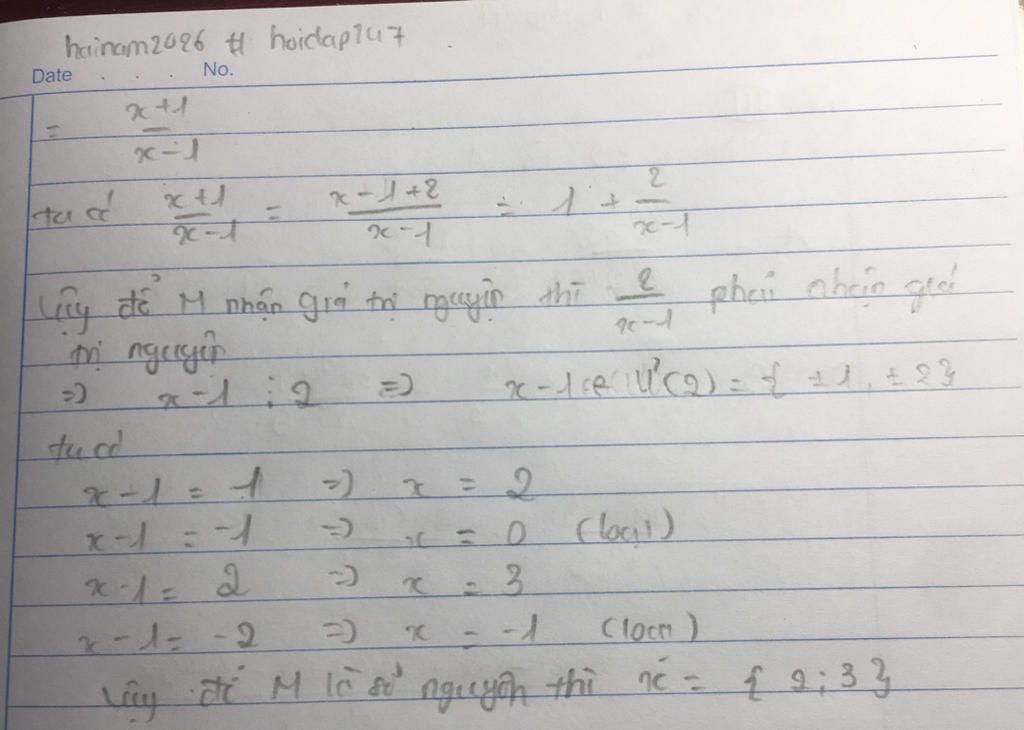 hainam2026 # hoidap247
Date . . . No.
= \frac{x+1}{x-1}
ta có \frac{x+1}{x-1} = \frac{x-1+2}{x-1} = 1 + \frac{2}{x-1}
Vậy để M nhận giá trị nguyên thì \frac{2}{x-1} phải nhận giá
trị nguyên
=> x-1 ⋮ 2 => x-1 ∈ Ư(2) = { ±1, ±2}
ta có
x-1 = 1 => x = 2
x-1 = -1 => x = 0 (loại)
x-1 = 2 => x = 3
x-1 = -2 => x = -1 (loại)
Vậy để M là số nguyên thì x = { 2; 3 }